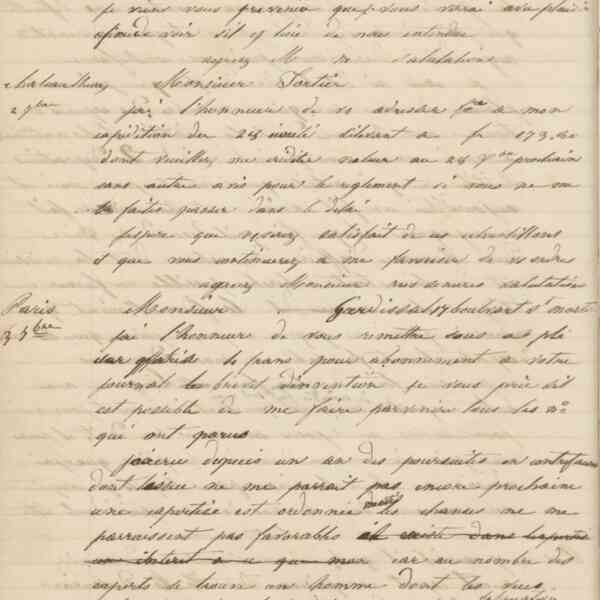 je viens vous prevenir que je vous verai avec plaisir
afin de voir s'il y lieu de nous entendre
agreez M me salutations
Monsieur Fortier
2 7bre
j'ai l'honneur de vs adresser fre de mon
expedition du 25 ecoulé s'elevant a fr 173.60
dont veuillez me crediter valeur au 25 prochain
sans autre avis pour le reglement si vous ne me
le faites passer dans le delai
J'espere que vs serez satisfait de ces echantillons
et que vous continuerez a me favoriser de vs ordres
agreez Monsieur mes sinceres salutations
Paris
3 7bre
Monsieur Gardissal 17 boulevart St martin
j'ai l'honneur de vous remettre sous ce pli
francs pour abonnement a votre
journal le brevet d'invention je vous prie s'il
est possible de me faire parvenir tous les nos
qui ont parus
depuis un an des poursuites en contrefacon
dont l'issue ne me parrait pas encore prochaine
une expertise est ordonnée mais les chances ne me
parraissent pas favorables il existe dans l'expertise
un interet a ce que mon car au nombre des
experts se trouve un homme dont les vues